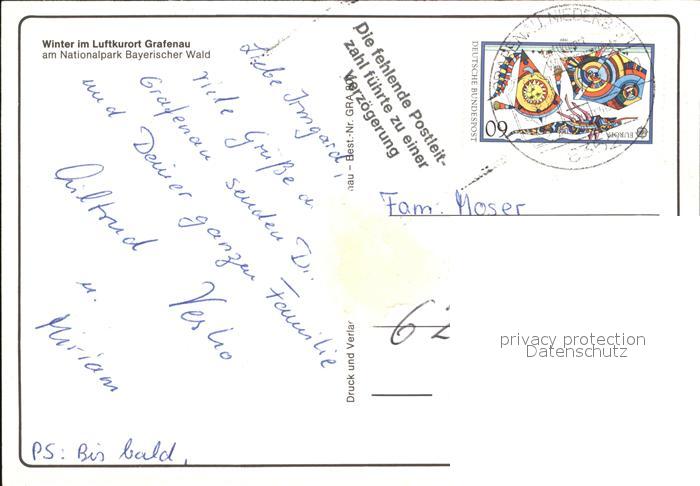 Winter im Luftkurort Grafenau
am Nationalpark Bayerischer Wald
Liebe Irmgard,
viele Grüße a.
Grafenau senden Di.
und Deiner ganzen Familie
Wiltrud Vesko
u.
Miriam
PS: Bis bald,
Druck und Verlag
nau – Best.-Nr. GRA
Die fehlende Postleit-
zahl führte zu einer
Verzögerung
DEUTSCHE BUNDESPOST
60
EUROPA
Fam. Moser
62
privacy protection
Datenschutz